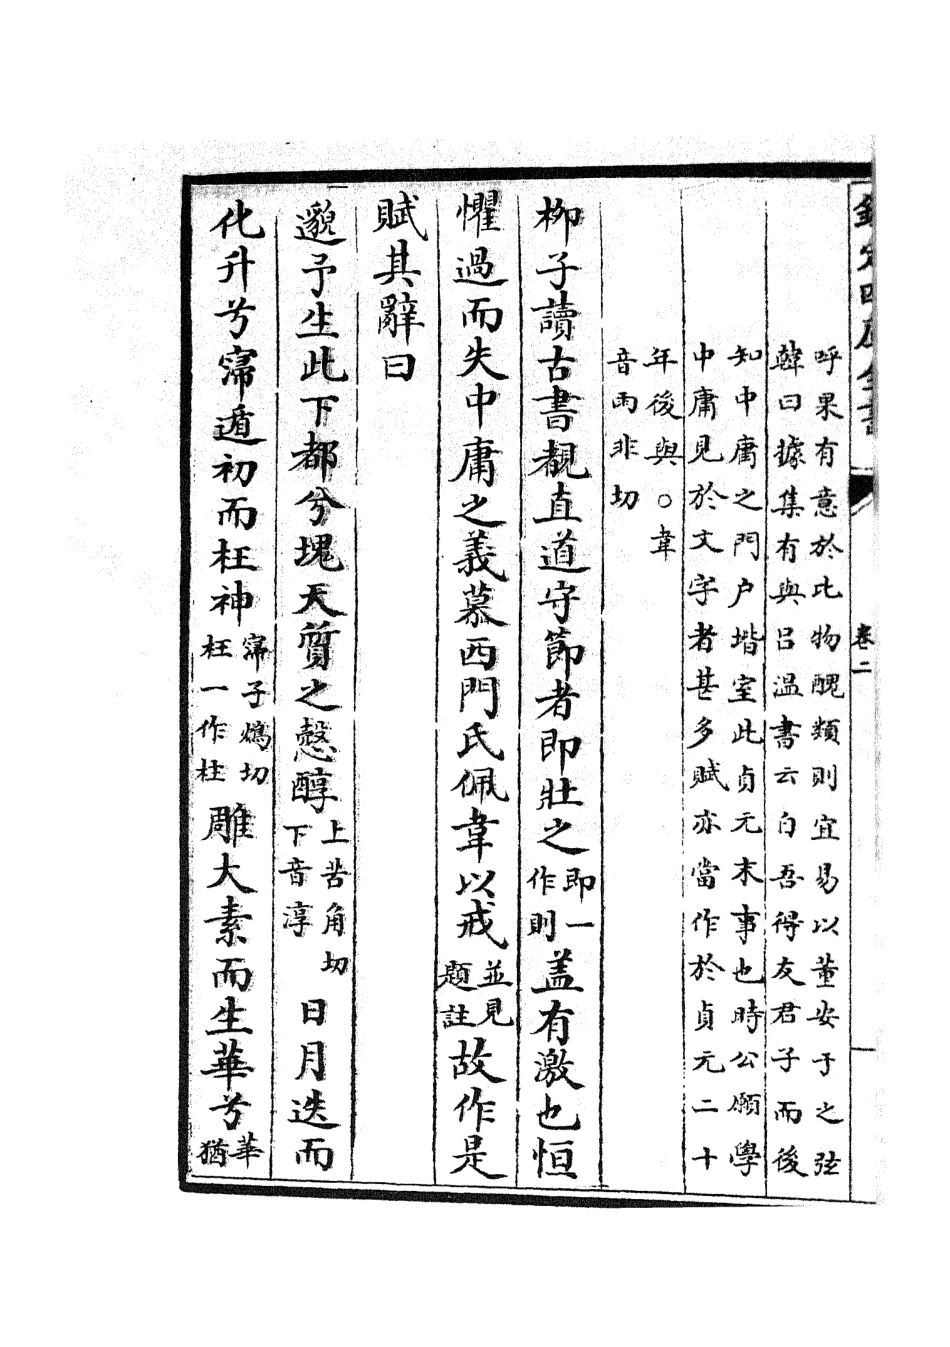 欽定四庫全書
卷二
呼果有意於此物醜類則宜易以董安于之弦
韓曰據集有與呂溫書云白吾得友君子而後
知中庸之門户堦室此貞元末事也時公願學
中庸見於文字者甚多賦亦當作於貞元二十
年後與○韋
音雨非切
柳子讀古書覩直道守節者即壯之即一作則盖有激也恒
懼過而失中庸之義慕西門氏佩韋以戒並見題註故作是
賦其辭曰
邈予生此下都兮塊天質之慤醇上苦角切下音淳日月迭而
化升兮寋遁初而枉神寋子鴆切枉一作柱雕大素而生華兮華猶